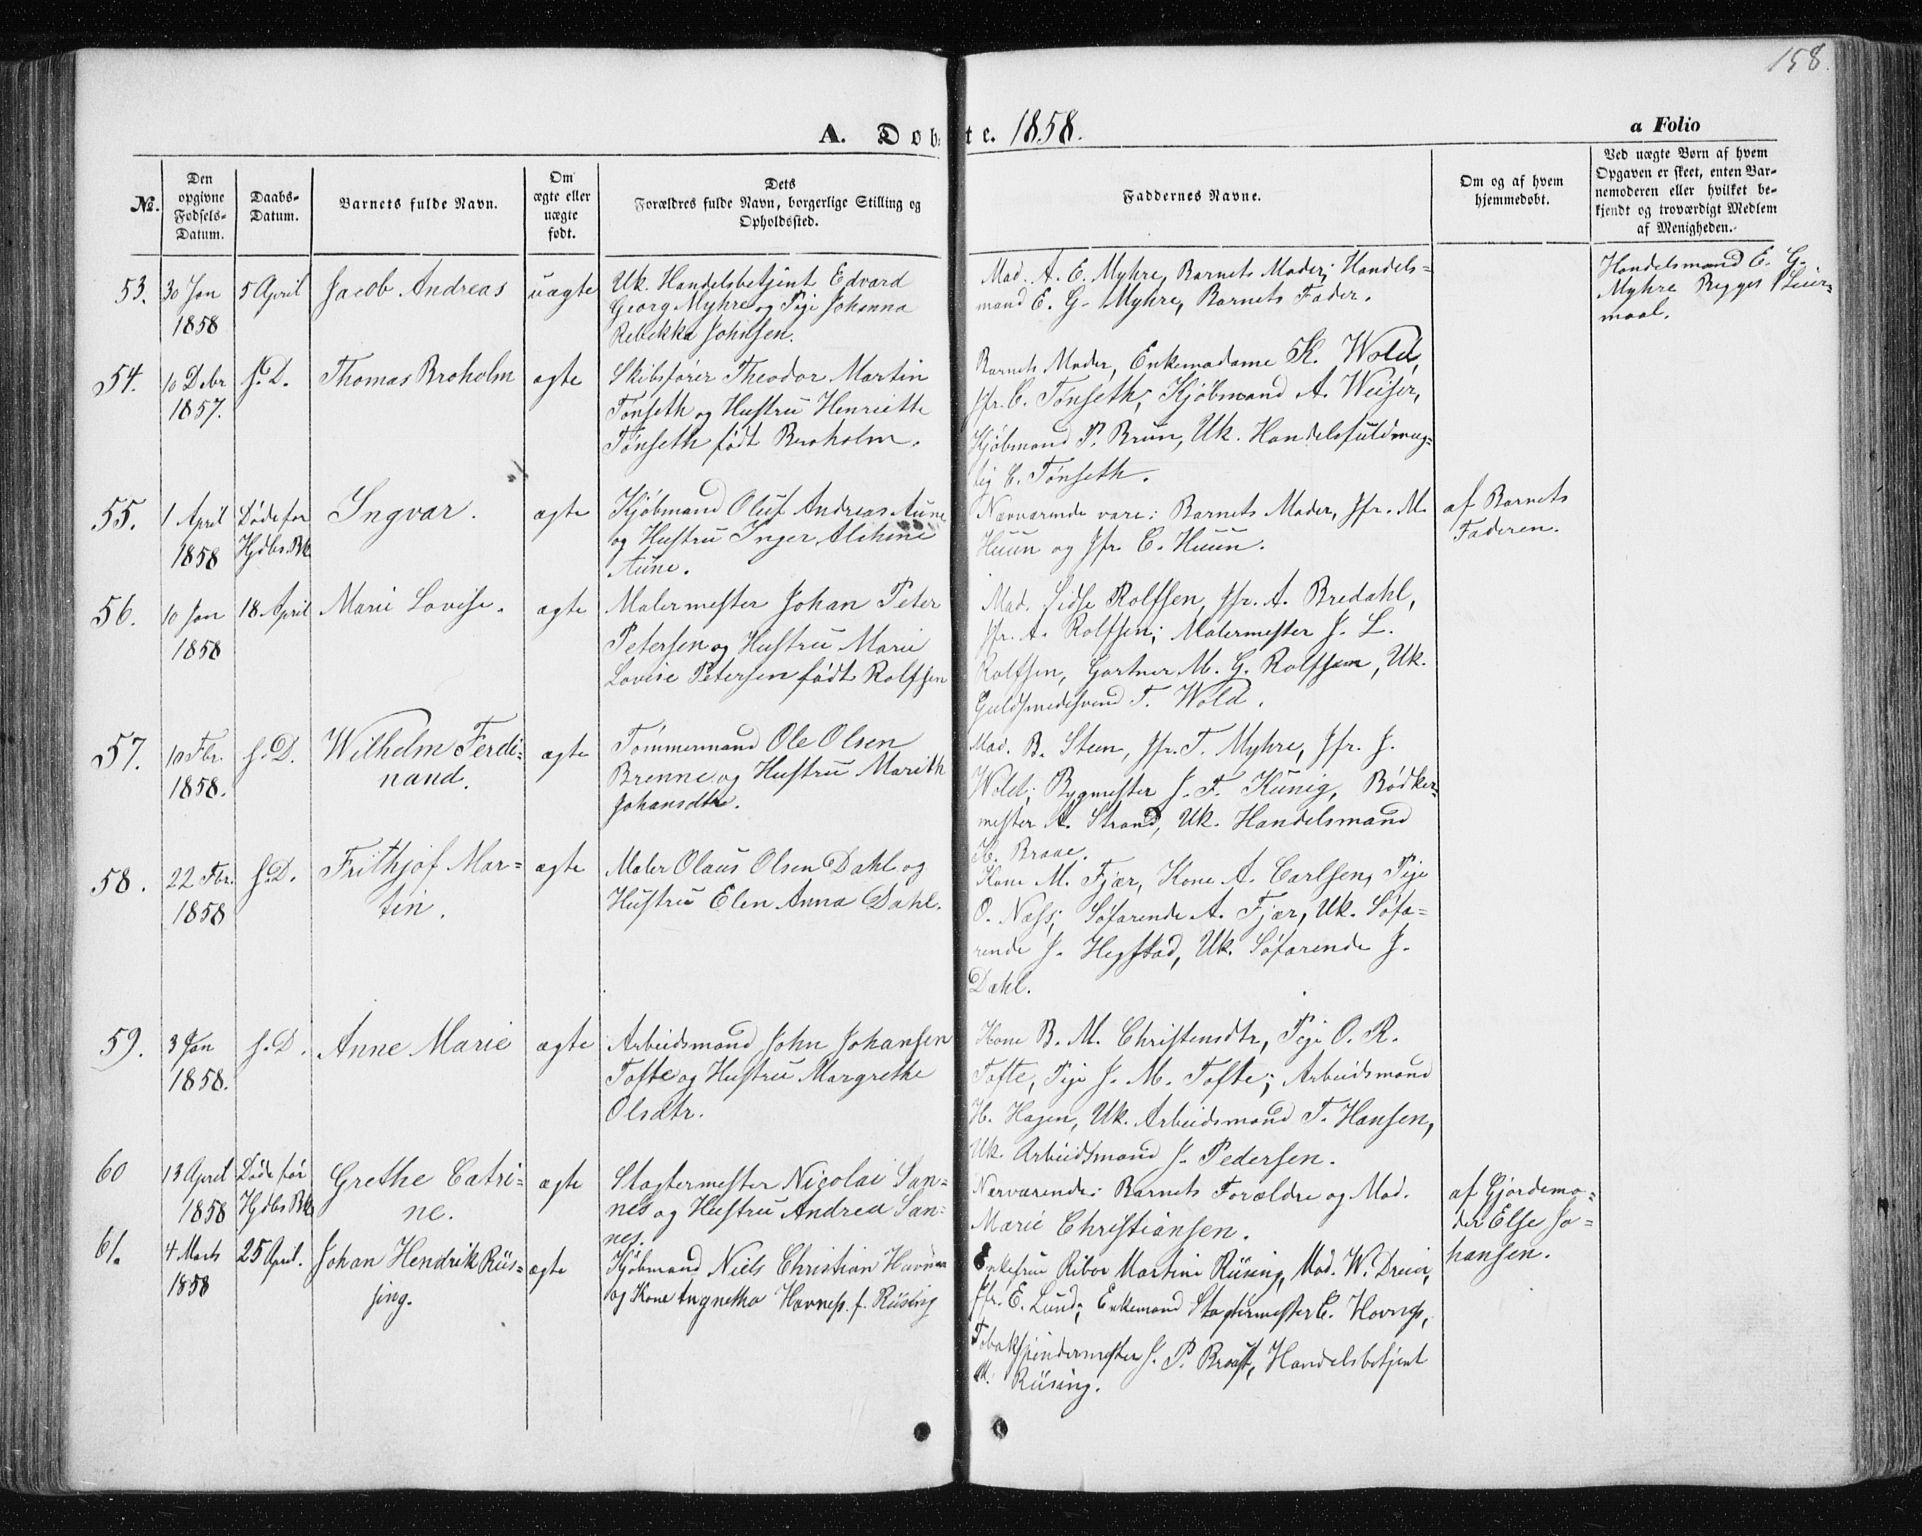 158.
A. Døbte. 1858.
a Folio
No.
Den opgivne Fødsels-Datum.
Daabs-Datum.
Barnets fulde Navn.
Om ægte eller uægte født.
Dets Forældres fulde Navn, borgerlige Stilling og Opholdssted.
Faddernes Navne.
Om og af hvem hjemmedøbt.
Ved uægte Børn af hvem Opgaven er skeet, enten Barnemoderen eller hvilket bekjendt og troværdigt Medlem af Menigheden.
53. 30 Jan 1858 5 April Jacob Andreas uægte
Uk. Handelsbetjent Edvard
Georg Myhre og Pige Johanna
Rebekka Johnsen.
Mad. A. E. Myhre, Barnets Moder; Handels=
mand E. G. Myhre, Barnets Fader.
Handelsmand E. G.
Myhre Begges Leier=
maal.
54. 10 Debr 1857. s. D. Thomas Broholm ægte
Skibsfører Theodor Martin
Tønseth og Hustru Henriette
Tønseth født Broholm.
Barnets Moder, Enkemadame K. Wold,
Jfr. C. Tønseth; Kjøbmand A. Weiser,
Kjøbmand P. Brun, Uk. Handelsfuldmæg-
tig C. Tønseth.
55. 1 April 1858 Døde før Hjdbs. Bk Ingvar. ægte
Kjøbmand Oluf Andreas Aune
og Hustru Inger Alethine
Aune.
Nærværende vare: Barnets Moder, Jfr. M.
Huun og Jfr. C. Huun.
af Barnets
Faderen.
56. 10 Jan 1858 18 April Marie Lovise. ægte
Malermester Johan Peter
Petersen og Hustru Marie
Lovise Petersen født Rolfsen
Mad. Sidse Rolfsen, Jfr. A. Bredahl,
Jfr. A. Rolfsen; Malermester J. L.
Rolfsen, Gartner M. G. Rolfsen, Uk.
Guldsmedsvend T. Wold.
57. 10 Fbr. 1858. s. D. Wilhelm Ferdi=
nand. ægte
Tømmermand Ole Olsen
Brenne og Hustru Marith
Johansdtr.
Mad. B. Steen, Jfr. T. Myhre, Jfr. J.
Wold; Bygmester J. F. Kunig, Bødker=
mester A. Strand, Uk. Handelsmand
H. Braae.
58. 22 Fbr. 1858 s. D. Frithjof Mar=
tin. ægte
Maler Olaus Olsen Dahl og
Hustru Elen Anna Dahl.
Kone M. Fjær, Kone A. Carlsen, Pige
O. Næss; Søfarende A. Fjær, Uk. Søfa=
rende J. Hegstad, Uk. Søfarende J.
Dahl.
59. 3 Jan 1858. s. D. Anne Marie ægte
Arbeidsmand John Johansen
Tofte og Hustru Margrethe
Olsdtr.
Kone B. M. Christensdtr, Pige O. R.
Tofte, Pige J. M. Tofte; Arbeidsmand
H. Hagen, Uk. Arbeidsmand T. Hansen,
Uk. Arbeidsmand J. Pedersen.
60 13 April 1858 Døde før Hjdbs Bk Grethe Catri=
ne. ægte
Slagtermester Nicolai San=
nes og Hustru Andrea San=
nes.
Nærværende: Barnets Forældre og Mad.
Marie Christiansen.
af Gjordemo=
der Else Jo=
hansen.
61. 4 Marts 1858 25 April. Johan Hendrik Rüs=
sing. ægte
Kjøbmand Niels Christian Havnes
og Kone Angnetha Havness. f. Rüsing
Enkefrue Ribor Martine Rüsing, Mad. W. Dreier,
Jfr. E. Lund; Enkemand Slagtermester C.
Tobakspindermester J. P. Handelsbetjent
M. Rüsing.